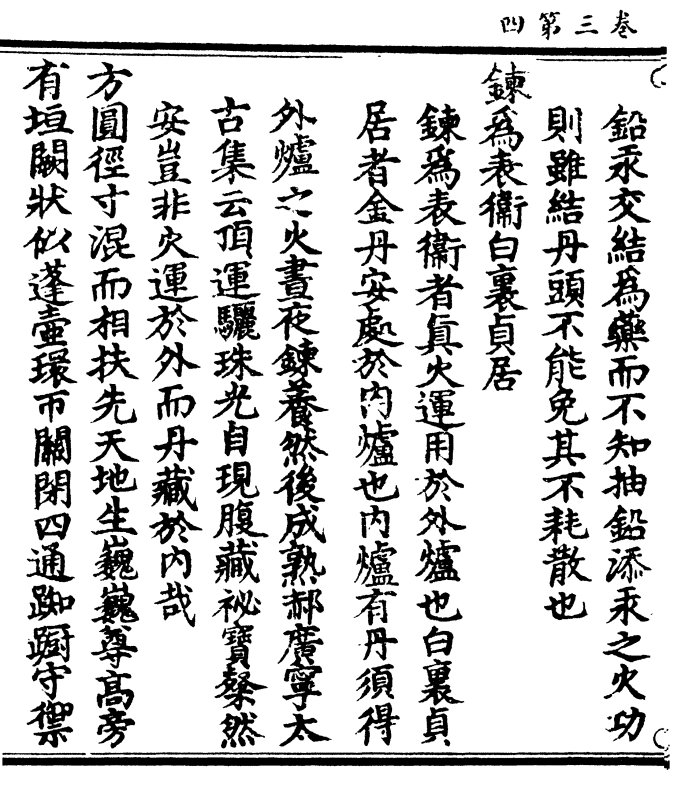 卷三第四
鉛汞交結爲藥而不知抽鉛添汞之火功
則雖結丹頭不能免其不耗散也
鍊爲表衞白裏貞居
鍊爲表衞者眞火運用於外爐也白裏貞
居者金丹安處於内爐也内爐有丹須得
外爐之火晝夜鍊養然後成熟郝廣寧太
古集云頂運驪珠光自現腹藏祕寶粲然
安豈非火運於外而丹藏於内哉
方圓徑寸混而相扶先天地生巍巍尊髙旁
有垣闕狀似蓬壷環帀關閉四通踟蹰守禦